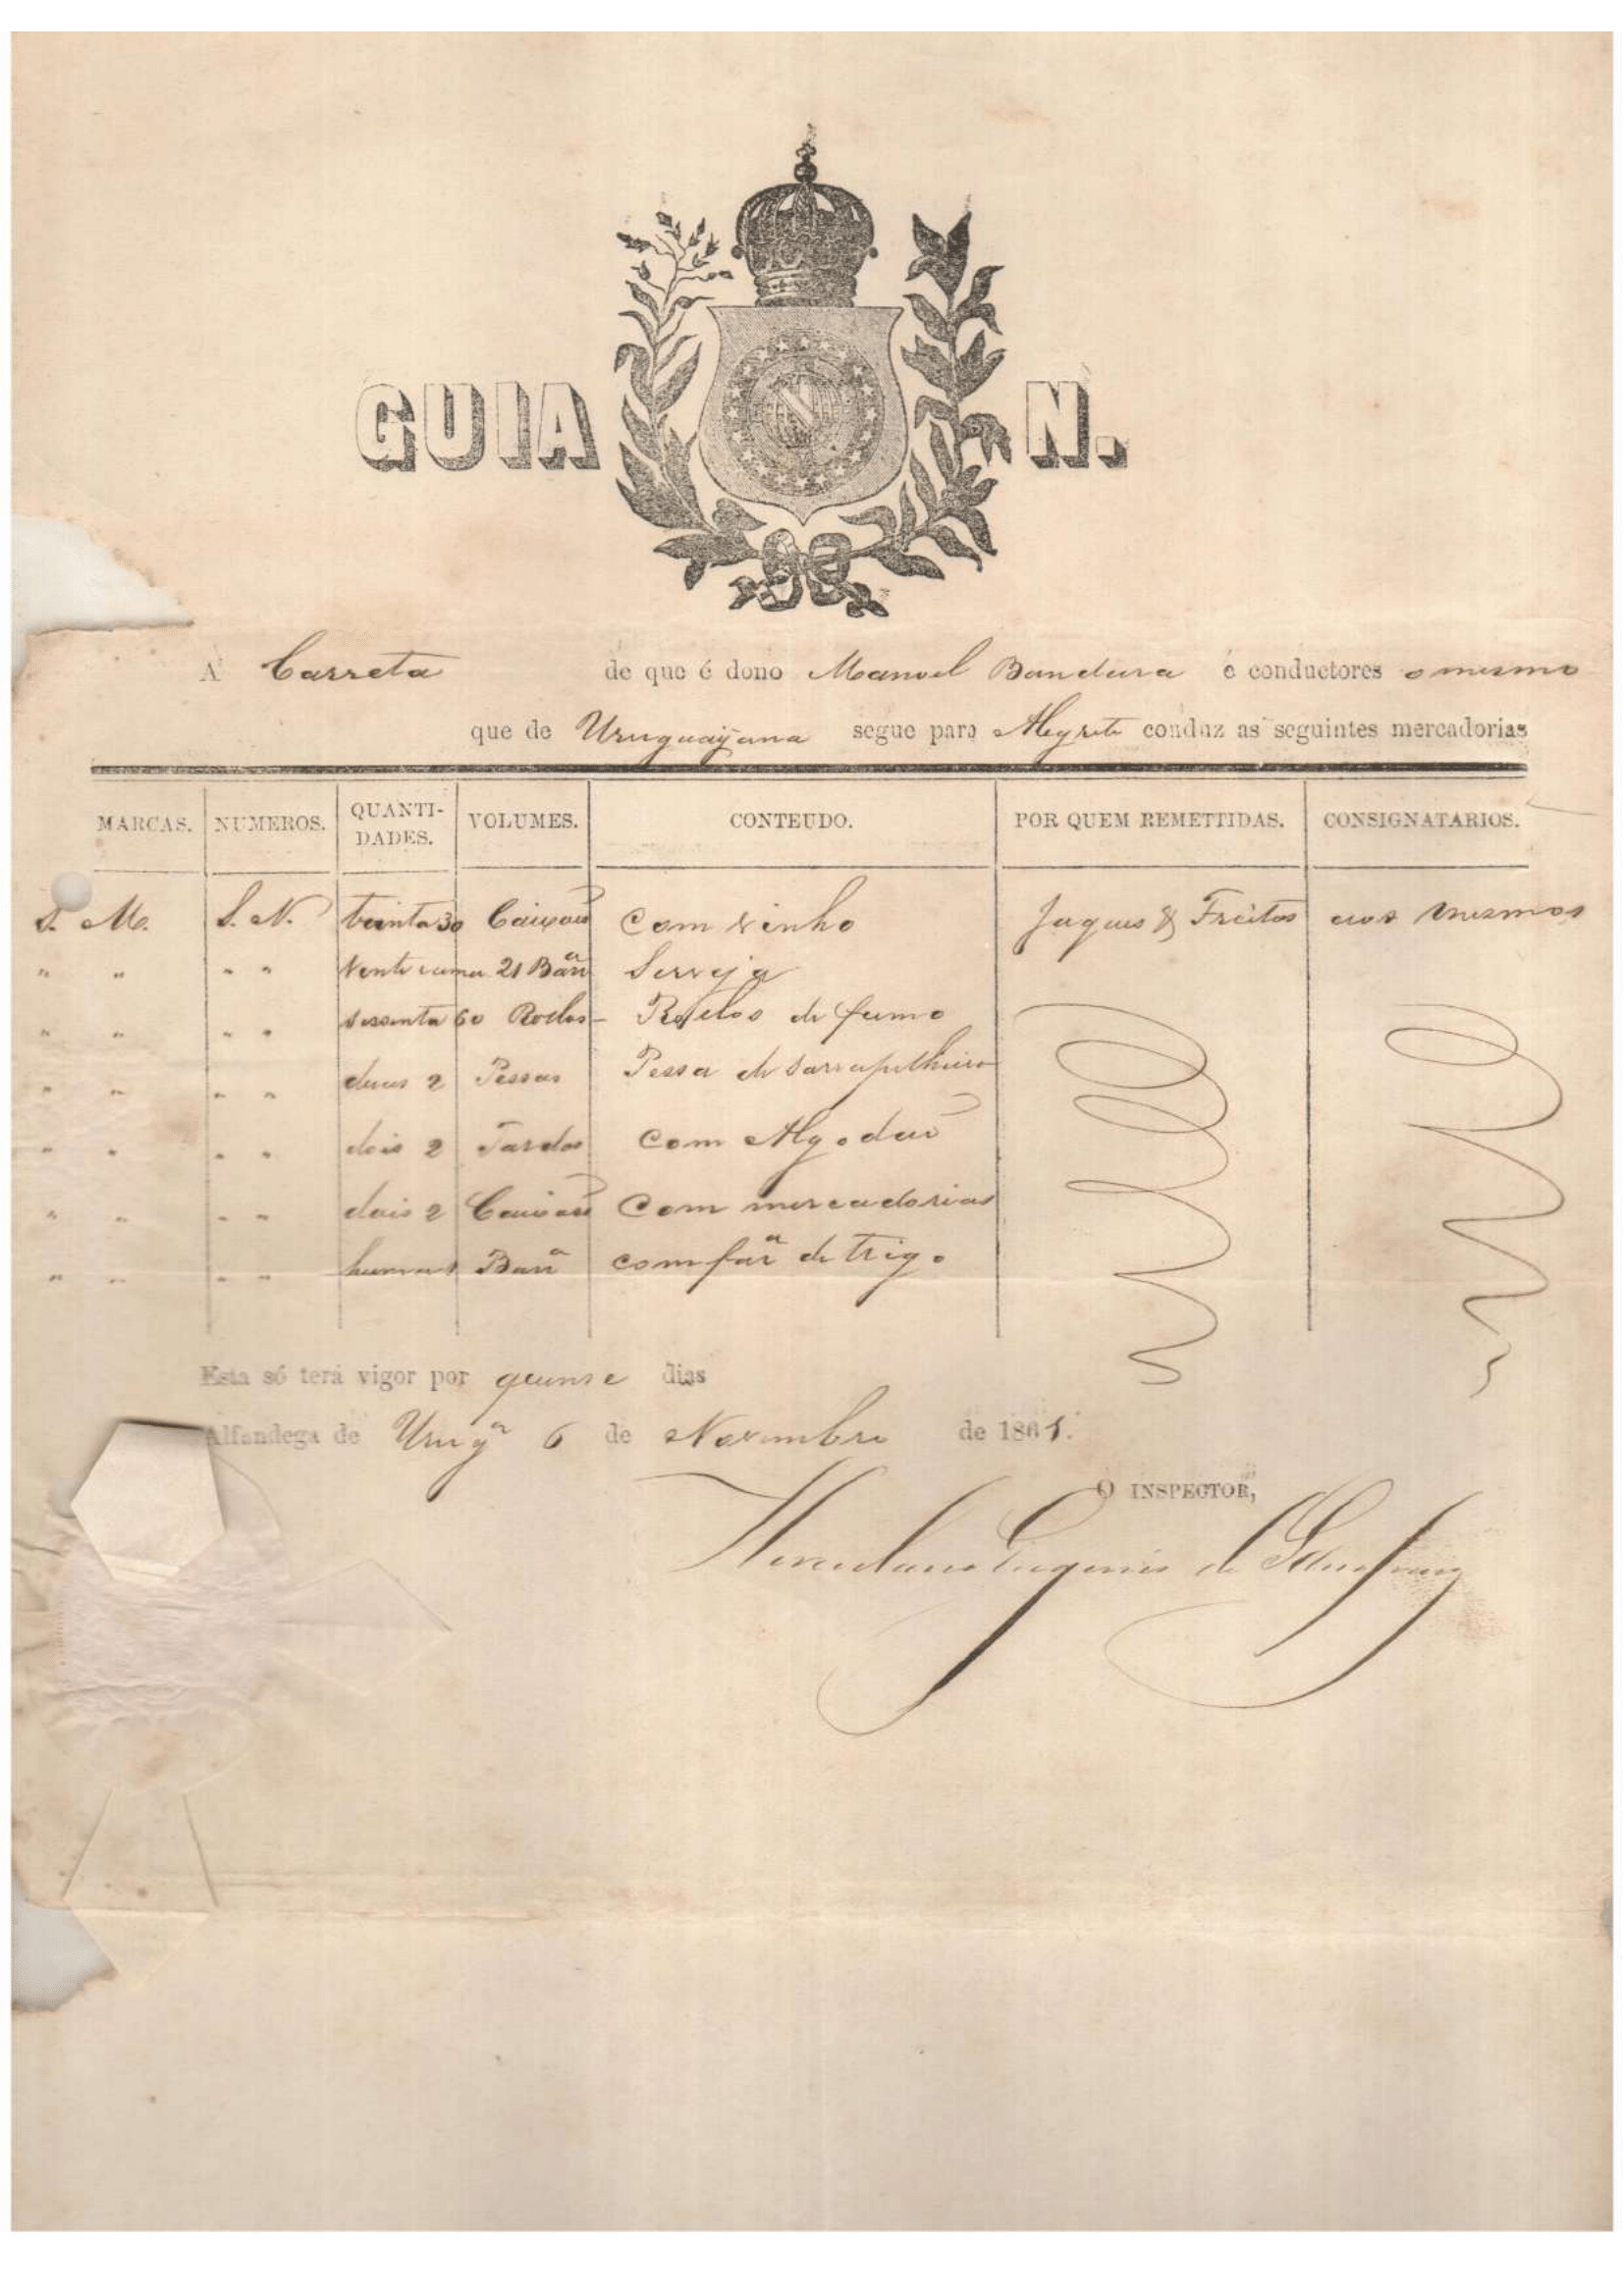 GUIA N.
A Carreta de que é dono Manoel Bandura e conductores o mesmo
que de Uruguayana segue para Alegrete conduz as seguintes mercadorias
MARCAS. NUMEROS. QUANTI-DADES. VOLUMES. CONTEUDO. POR QUEM REMETTIDAS. CONSIGNATARIOS.
S. M. S. N. trinta 30 Caixões com vinho Jaques & Freitas aos mesmos
" " " " Vente uma 21 Barr.as Serveja
" " " " sessenta 60 Rollos - Rollos de fumo
" " " " duas 2 Pessas Pessa de sarrapilheira
" " " " dois 2 Fardos com Algodão
" " " " dois 2 Caixões Com mercadorias
" " " " huma 1 Barr.a com far.a de trigo
Esta só terá vigor por quinse dias
Alfandega de Urug.na 6 de Novembro de 1861.
O INSPECTOR,
Eugenio de